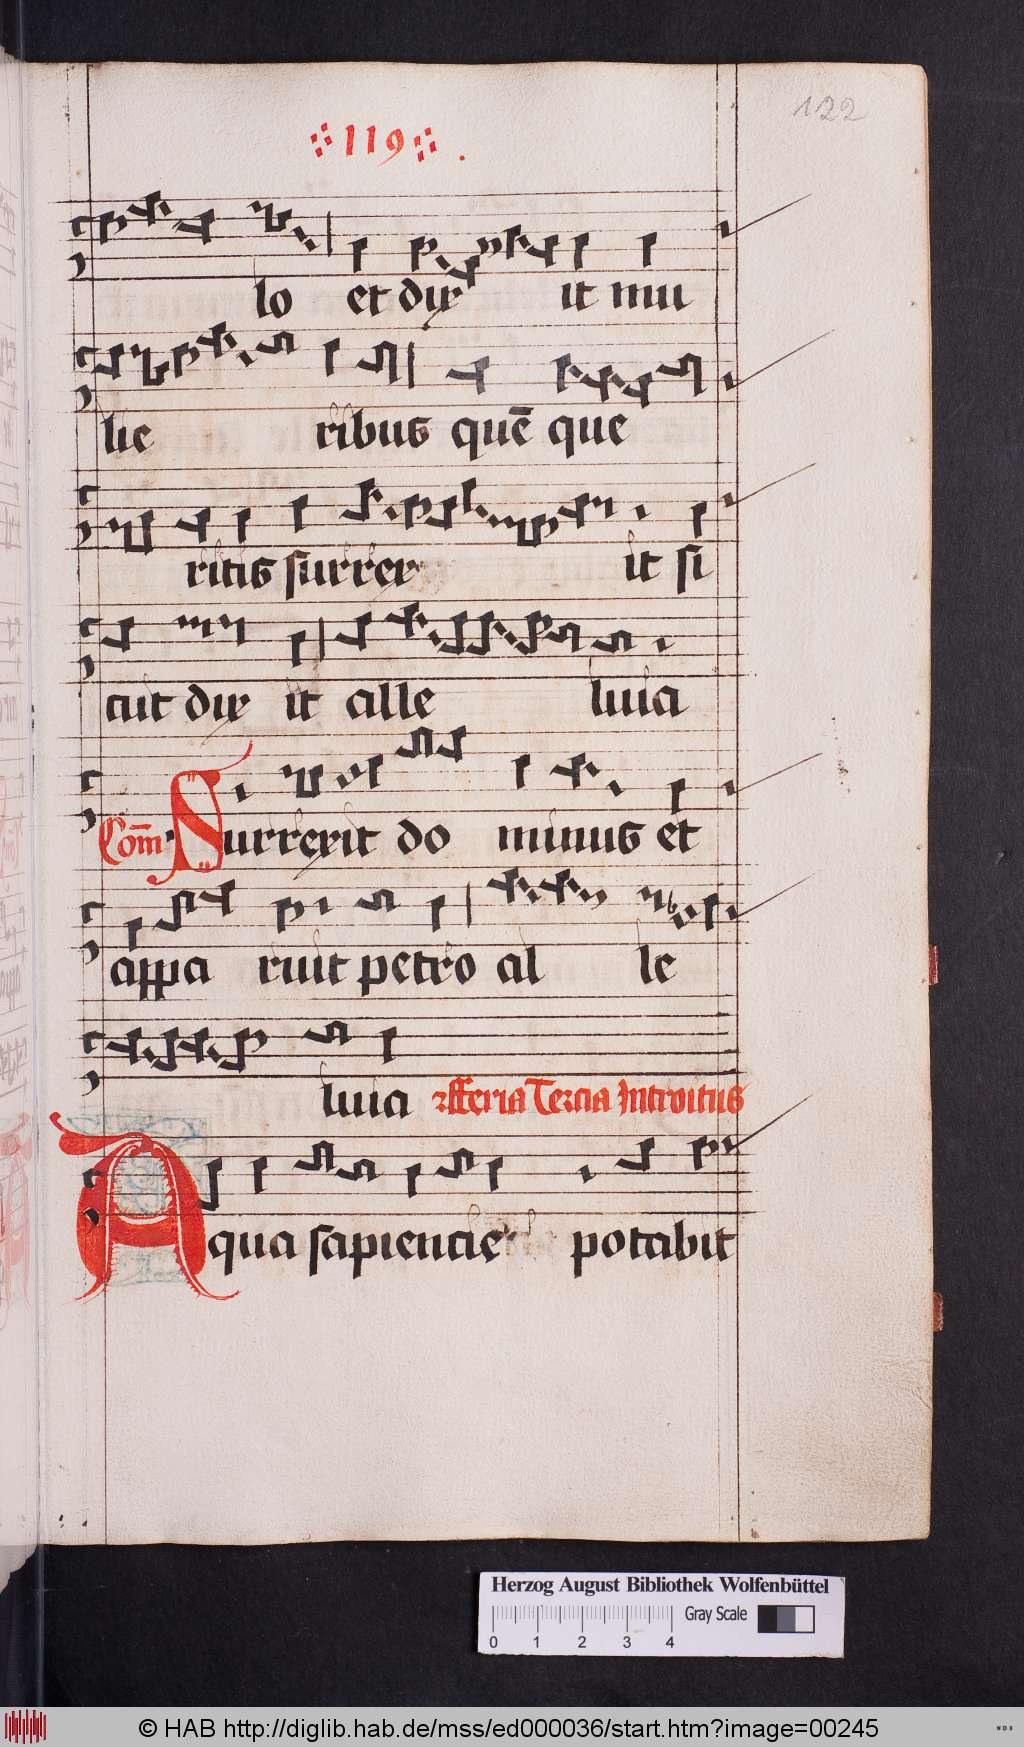 122
119
lo et dix it mu
lie ribus quē que
ritis surrex it si
cut dix it alle luia
Com̄ Surrexit do minus et
appa ruit petro al le
luia Fferia Tercia Introitus
Aqua sapiencie potabit
Herzog August Bibliothek Wolfenbüttel
Gray Scale
0 1 2 3 4
© HAB http://diglib.hab.de/mss/ed000036/start.htm?image=00245